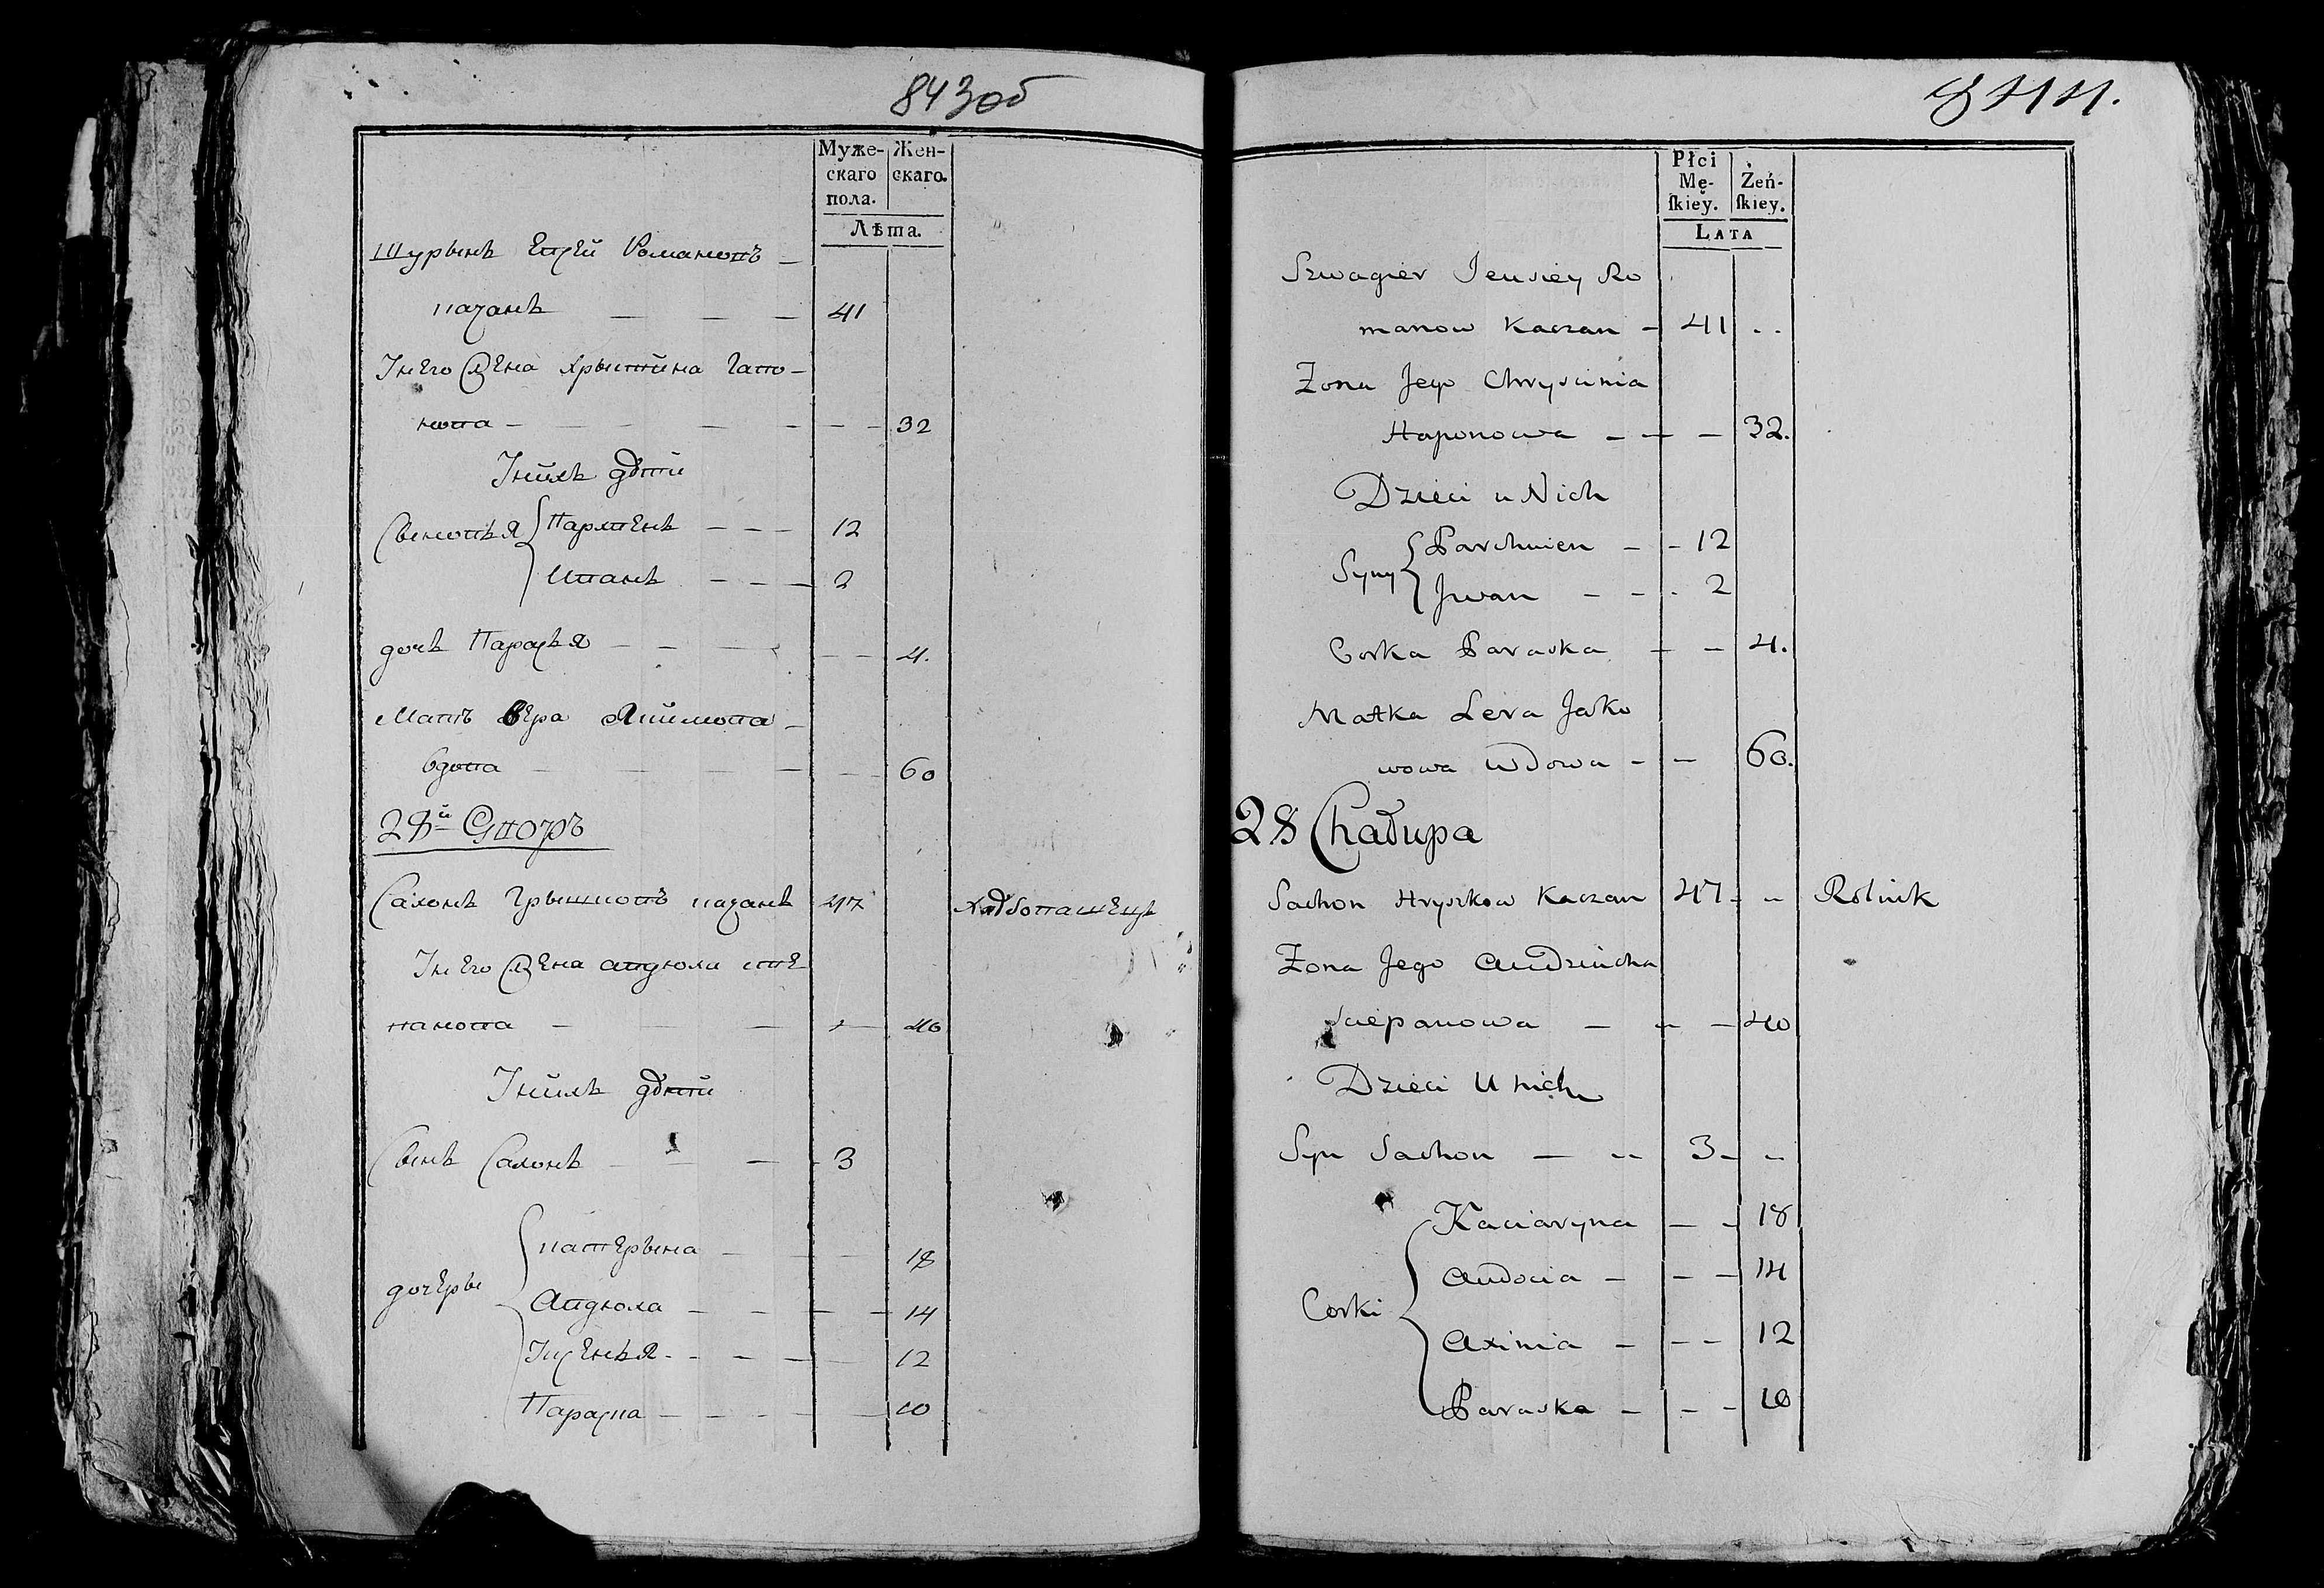 843об
Муже-
скаго
пола.
Жен-
скаго.
Лѣта.
Шурынъ Евсей Романовъ —
качанъ — — — 41
Унего жена хрыстина Гапо-
нова — — — — — — 32
Унихъ дѣти
Сыновья { Пархменъ — — — 12
Иванъ — — — 2
дочь Парасья — — — — — 4.
Мать вера Якимова —
вдова — — — — — — 60
28й Дворъ
Сахонъ Грышковъ качанъ 47 хлѣбопашецъ
Унего жена авдюха сте
панова — — — — 40
Унихъ дѣти
Сынъ Сахонъ — — — 3
дочеры { катерына — — — 18
Авдюха — — — — 14
Аксенья — — — — 12
Параска — — — — — 10
844.
Płci
Mę-
ſkiey.
Żeń-
ſkiey.
LATA
Szwagier Jeusiey Ro
manow Kaczan — 41 ..
Zona Jego Chryscinia
Haponowa — — — 32.
Dzieci u Nich
Syny { Parchmien — - 12
Jwan — — . 2
Corka Paraska — — 4.
Matka Jako
wowa Wdowa — — 60.
28 Chadupa
Sachon Hryszkow Kaczan 47 - .. Rolnik
Zona Jego Audziucha
Sciepanowa — — — 40
Dzieci U nich
Syn Sachon — .. 3 - ..
Corki { Kaciaryna — — 18
Audocia — — — 14
Axinia — — — 12
Paraska — — — 10